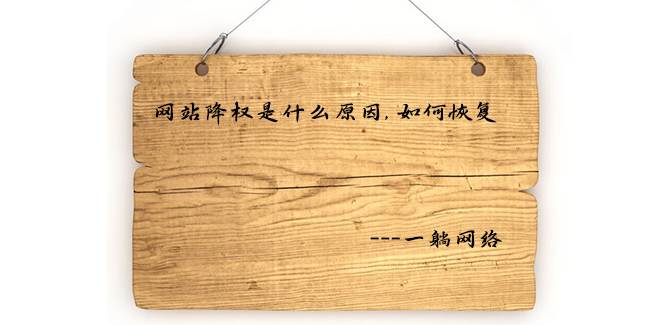 网站降权是什么原因,如何恢复
---一躺网络